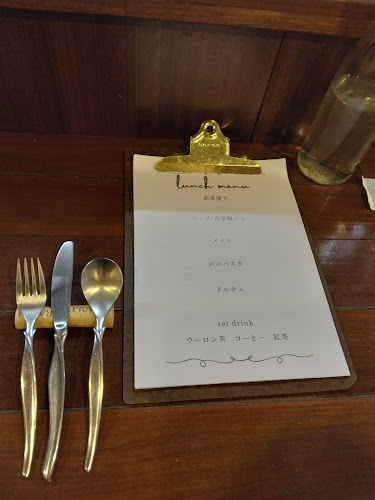 lunch menu
前菜盛り
スープ/自家製パン
メイン
〆のパスタ
ドルチェ
set drink
ウーロン茶 コーヒー 紅茶